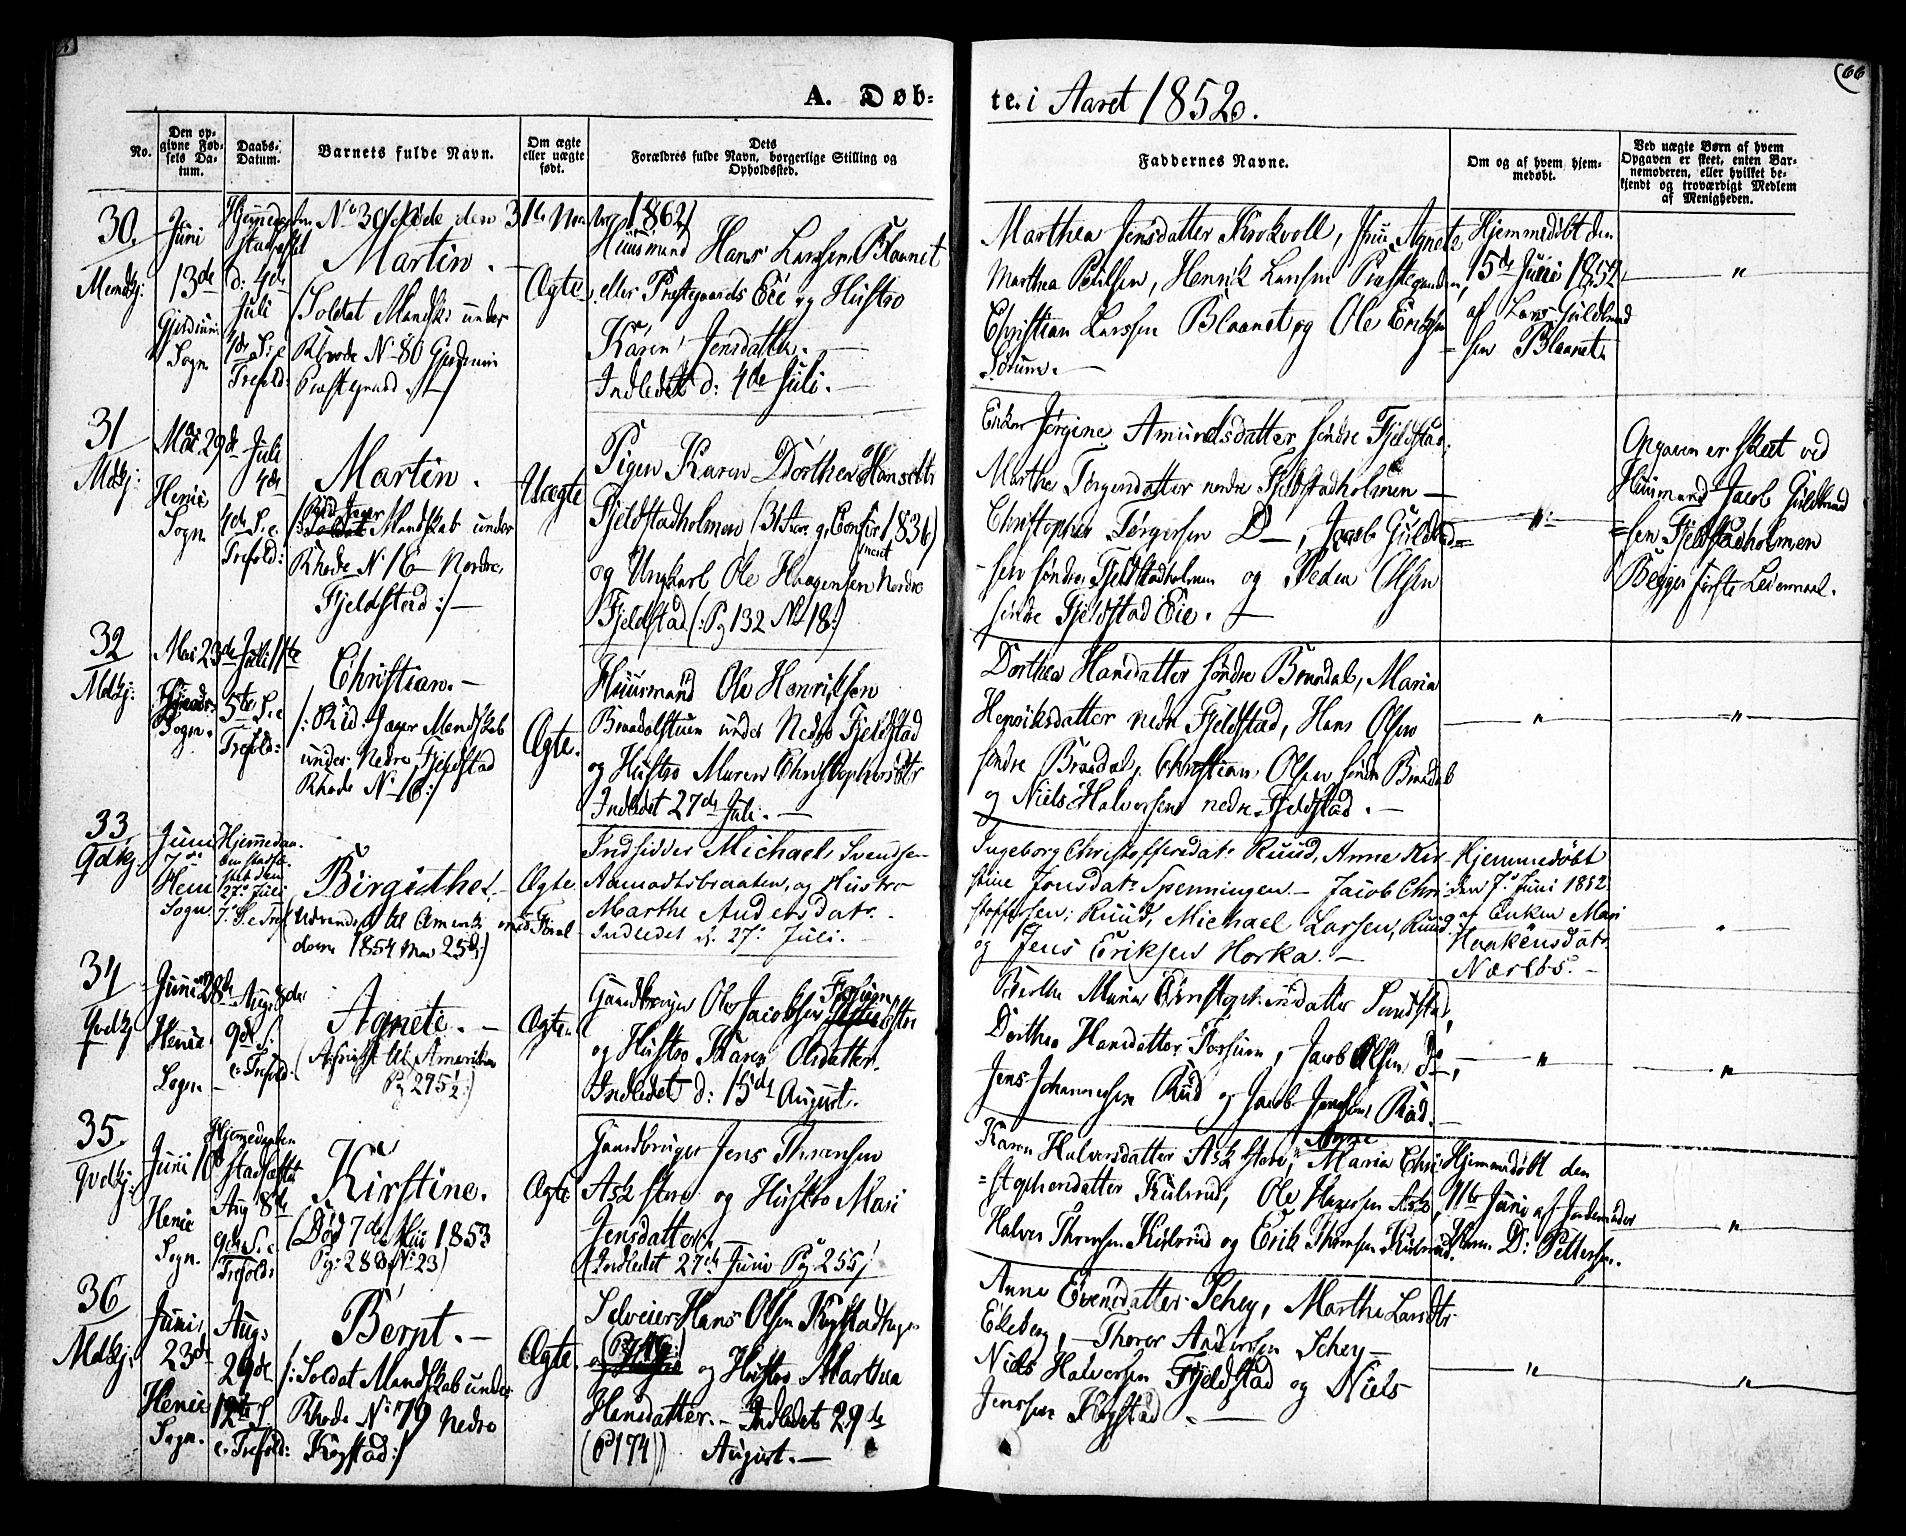 66
A. Døb-
te. i Aaret 1852.
No.
Den op-
givne Fød-
sels Da-
tum.
Daabs-
Datum.
Barnets fulde Navn.
Om ægte
eller uægte
født.
Dets
Forældres fulde Navn, borgerlige Stilling og
Opholdssted.
Faddernes Navne.
Om og af hvem hjem-
medøbt.
Ved uægte Børn af hvem
Opgaven er skeet, enten Bar-
nemoderen, eller hvilket be-
kjendt og troværdigt Medlem
af Menigheden.
30.
Juni
13de
Sogn
d: 4de
Juli
4de S. e.
Trefold:
No 30 døde den 31te 1862)
Martin.
(Soldat Mandsk: under
Rhode No 80
Præstegaard
Ægte
Huusmand Hans Larssen Blaanet
Præstegaards Eie og Hustro
Karen Jensdatter.
Indledet d: 4de Juli.
Marthea Jensdatter Krokvoll, Agnete
Marthea Henrik Larssen
Christian Larssen Blaanet og Ole
Sørum.
Hjemmedøbt den
15de Juni 1852
af Lars Guldbrand
=sen Blaanet
"
31
Mdkj:
Mai 29de
Henie
Sogn
Juli
4de
4de S. e.
Trefold:
Martin.
Mandskab under
Rhode No 16 Nordre
Fjeldstad :/
Uægte
Pigen Karen Dorthea
Fjeldstadholmen 1831)
og Ungkarl Ole Haagensen Nordre
Fjeldstad (: Pg 132 No 18 :)
Enken Jørgine Amundsdatter søndre Fjeldstad
Marthe Torgersdatter nordre Fjeldstadholmen
Christopher Torgersen D, Jacob Guldbrand=
-sen søndre Fjeldstadholmen og Peder Olsen
søndre Fjeldstad Eie.
"
Opgaven er skeet ved
Huusmand Jacob Guldbrand
=sen Fjeldstadholmen
Begges første Leiermaal.
32
Mdkj:
Mai 23de
Sogn.
Juli 11te
5te S. e.
Trefold:
Christian.
/: Rid: Jæger Mandskab
under Nedre Fjeldstad
Rhode No 16 :/
Ægte.
Huusmand Ole Henriksen
Brædalstuen under Nedre Fjeldstad
og Hustro Maren
Indledet 27de Juli.
Dorthea Hansdatter søndre Brædal, Maria
Henriksdatter nedre Fjeldstad, Hans Olsen
søndre Brædal, Christian Olsen søndre Brædal
og Niels Halvorsen nedre Fjeldstad.
"
"
33
Qdkj.
Juni
7de
Heni
Sogn
Hjemmedaa-
ben
27de Juli
7. S. e. Tref.
Birgithe.
1854 Mai 25de)
Ægte
Indsidder Michael Svendsen
Aamodtsbraaten, og Hustro
Marthe Andersdatr.
Indledet d. 27de Juli.
Ingeborg Christoffersdatr Ruud, Anne Kir-
stine Jonsdatr Spenningen. Jacob Chri-
stoffersen Ruud, Michael Larssen, Ruud
og Jens Eriksen Horka.
Hjemmedøbt
den 7de Juni 1852
af Enken Mari
Haakensdatr
Nærebø.
"
34
Qvdkj
Juni 28de
Henie
Sogn
Aug. 8de
9de S.
e. Trefold:
Agnete.
til Amerika
Pg 295½ :)
Ægte.
Gaardbruger Ole Jacobsen Forsum
og Hustro Karen Olsdatter.
Indledet d: 15de August.
Berthe Maria Sundstad,
Dorthea Hansdatter Forsum, Jacob Olsen Do,
Jens Johannesen Rud og Jacob Rud.
"
"
35.
Qvdkj.
Juni 10de
Henie
Sogn.
Hjemmedaaben
stadfæstet
Aug 8de
9de S. e.
Trefold:
Kirstine.
(Død 7de 1853
Pg: 288 No 23)
Ægte
Gaardbruger Jens Thoresen
Ask store og Hustro Mari
Jensdatter
(Indledet 27de Juni Pg 255)
Karen Halvorsdatter Ask store, Anne Maria Chri
=stophersdatter Kulsrud, Ole Ask,
Halvor Thoresen Kulsrud og Erik Thoresen Kulsrud.
Hjemmedøbt den
11te Juni af Jordemoder
D: Pettersen.
"
36
Mdkj:
Juni
23de
Henie
Sogn.
Aug:
29de
12te S.
e. Trefold:
Bernt.
/: Soldat Mandskab under
Rhode No 79 Nedre
Kogstad :/
Ægte.
Selveier Hans Olsen Kogstadhagen
og Hustro Marthea
Hansdatter. Indledet 29de
(P 174) August.
Anne Evensdatter Schey, Marthe Larsdtr
Ekeberg, Thorer Andersen Schey
Niels Halvorsen Fjeldstad og Niels
Jenssen Kogstad.
"
"